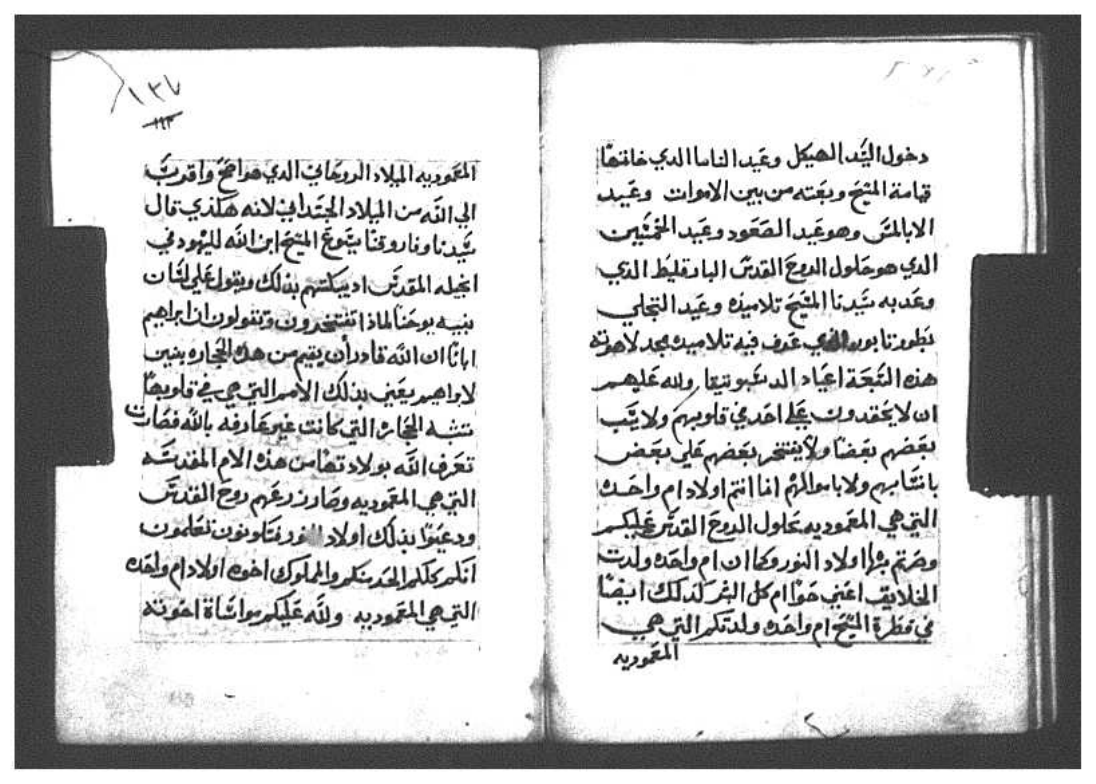 دخول السيد الهيكل وعيد الناسا الذي خاتمها
قيامة المسيح وبعته من بين الاموات وعيد
الابالمس وهو عيد الصعود وعيد الخمسين
الدي هو حلول الروح القدس البارقليط الدي
وعد به سيدنا المسيح تلاميده وعيد التجلي
بطور تابور الدي عرف فيه تلاميده مجد لاهوته
هذه التسعة اعياد الدسبوتيقا ولله عليهم
ان لا يحقدون علي احد في قلوبهم ولا يسب
بعضهم بعضا ولا يفتخر بعضهم علي بعض
بانسابهم ولا باموالهم انما انتم اولاد ام واحده
التي هي المعموديه بحلول الروح القدس عليكم
وصرتم بها اولاد النور وكما ان ام واحده ولدت
الخلايق اعني حوا ام كل البشر كذلك ايضا
في فطرة المسيح ام واحده ولدتكم التي هي
المعموديه
١٣٧
١٩٣
المعموديه الميلاد الروحاني الدي هو اصح واقرب
الي الله من الميلاد الجسداني لانه هكذي قال
سيدنا وفاروقنا يسوع المسيح ابن الله لليهود في
انجيله المقدس اد يبكتهم بذلك ويقول علي لسان
نبيه يوحنا لماذا تفتخرون وتقولون ان ابراهيم
ابانا ان الله قادر أن يقيم من هذه الحجاره بنين
لابراهيم يعني بذلك الامم التي هي في قلوبها
تشبه الحجاره التي كانت غير عارفه بالله فصارت
تعرف الله بولادتها من هذه الام المقدسه
التي هي المعموديه وصار زرعهم روح القدس
ودعيوا بذلك اولاد النور فتكونون تعلمون
انكم كلكم الحر منكم والمملوك اخوه اولاد ام واحده
التي هي المعموديه ولله عليكم مواساة اخوته